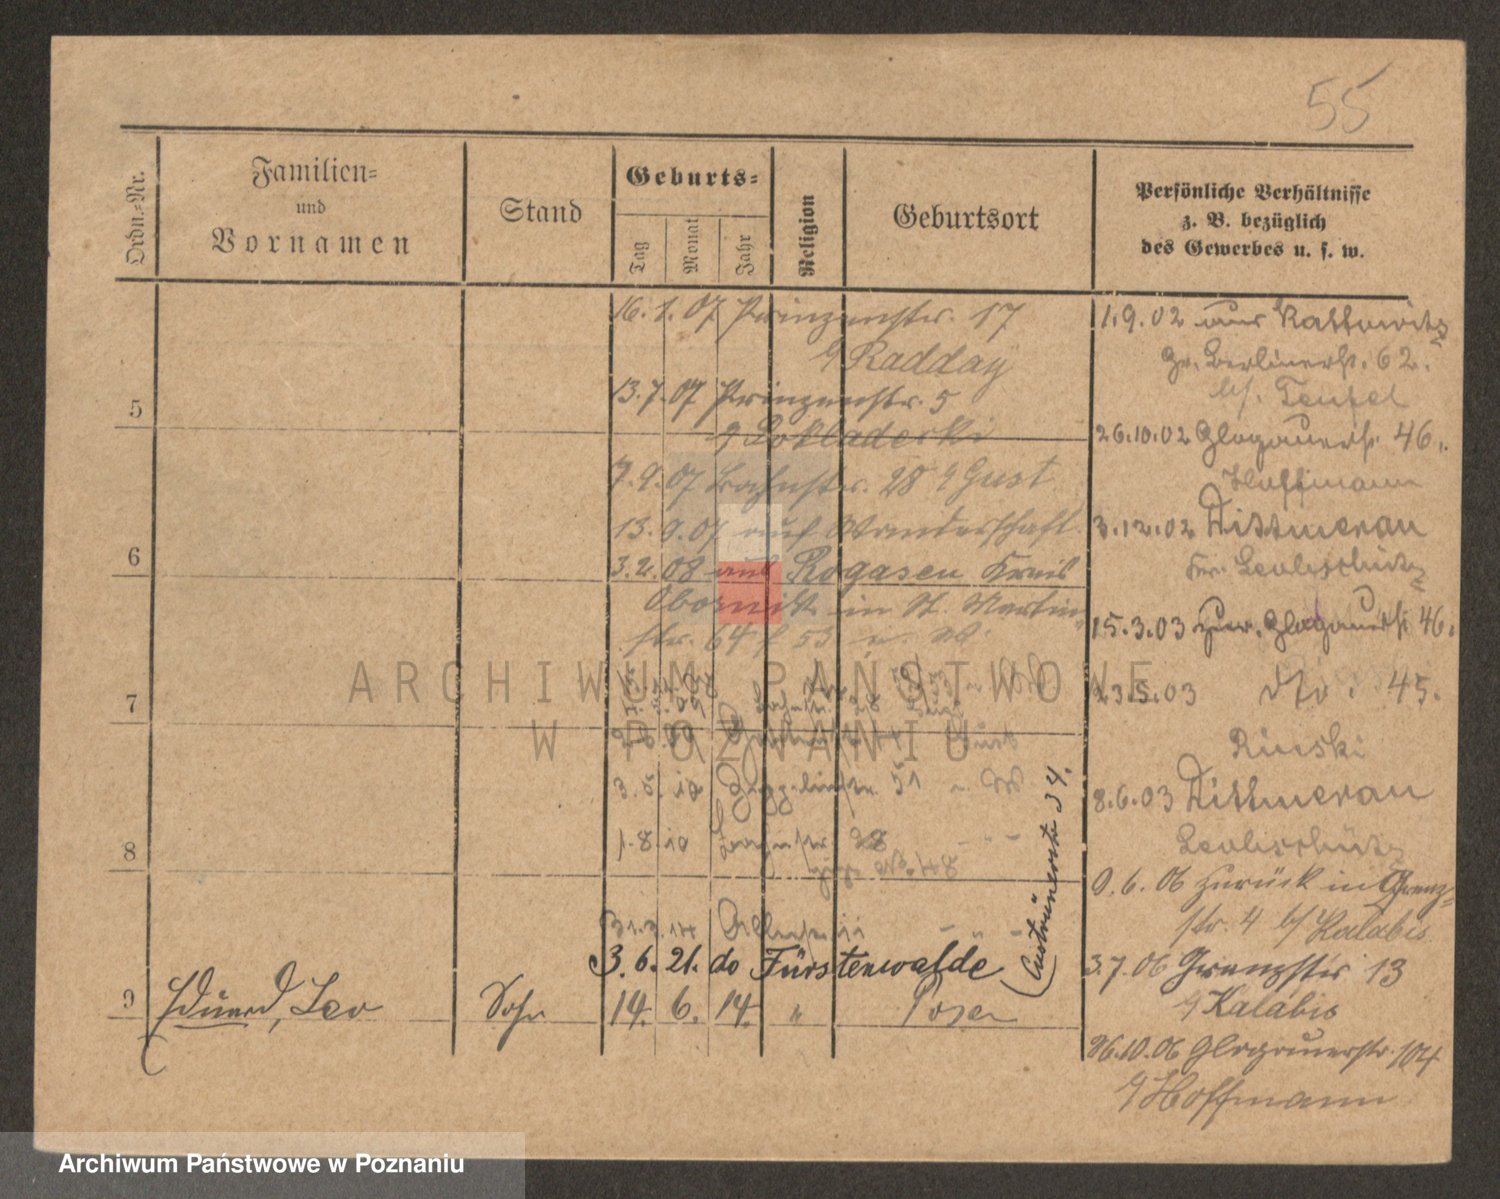 55
Ordn.-Nr.
Familien-
und
Vornamen
Stand
Geburts-
Tag
Monat
Jahr
Religion
Geburtsort
Persönliche Verhältnisse
z. B. bezüglich
des Gewerbes u. s. w.
16. 1. 07 Prinzenstr. 17
Radday
5
13. 7. 07 Prinzenstr. 5
7. 9. 07 Bahnstr. 28 Gust
13. 9. 07 auf Wanderschaft
6
3. 2. 08 aus Rogasen Kreis
Obornik in St. Martin-
str. 64
7
3. 5. 10
8
1. 8. 10
31. 3. 14
3. 6. 21. do Fürstenwalde
(Custrinerstr 34.
9 Eduard, Leo Sohn 14. 6. 14. " Posen
1. 9. 02 aus Kattowitz
Gr. Berlinerstr. 62.
bei Teufel
26. 10. 02 Glogauerstr. 46.
Hoffmann
3. 12. 02 Dittmerau
Kr. Leobschütz
15. 3. 03 zur. Glogauerstr. 46.
23. 5. 03 dto. 45.
Rinski
8. 6. 03 Dittmerau
Leobschütz
9. 6. 06 zurück in Grenz-
str. 4 b/ Kalabis
3. 7. 06 Grenzstr. 13
Kalabis
26. 10. 06 Glogauerstr. 104
Hoffmann
ARCHIWUM PAŃSTWOWE
W POZNANIU
Archiwum Państwowe w Poznaniu